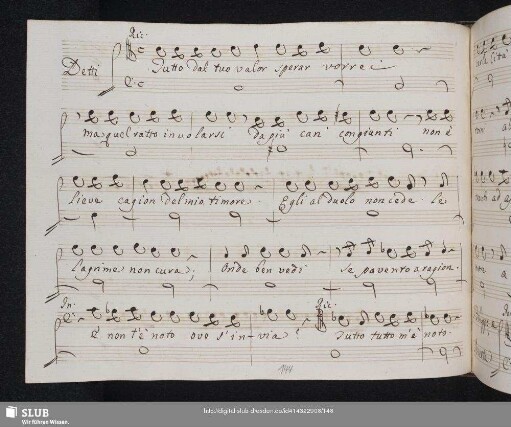 Ric:
Detti
Tutto dal tuo valor sperar vorrei
ma quel ratto involarsi da più cari congiunti non è
lieve cagion del mio timore. Egli al duolo non cede. Le
lagrime non cura; Onde ben vedi se pavento a ragion.
In: Ric:
E non t'è noto ove s'invia? Tutto tutto m'è noto.
144
SLUB
Wir führen Wissen.
http://digital.slub-dresden.de/id414322908/148